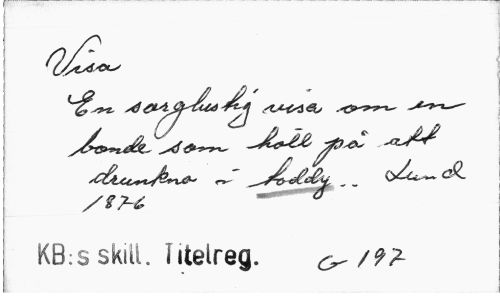 Visa
En sorglustig visa om en
bonde som höll på att
drunkna i toddy.. Lund
1876
KB:s skill. Titelreg. G 197